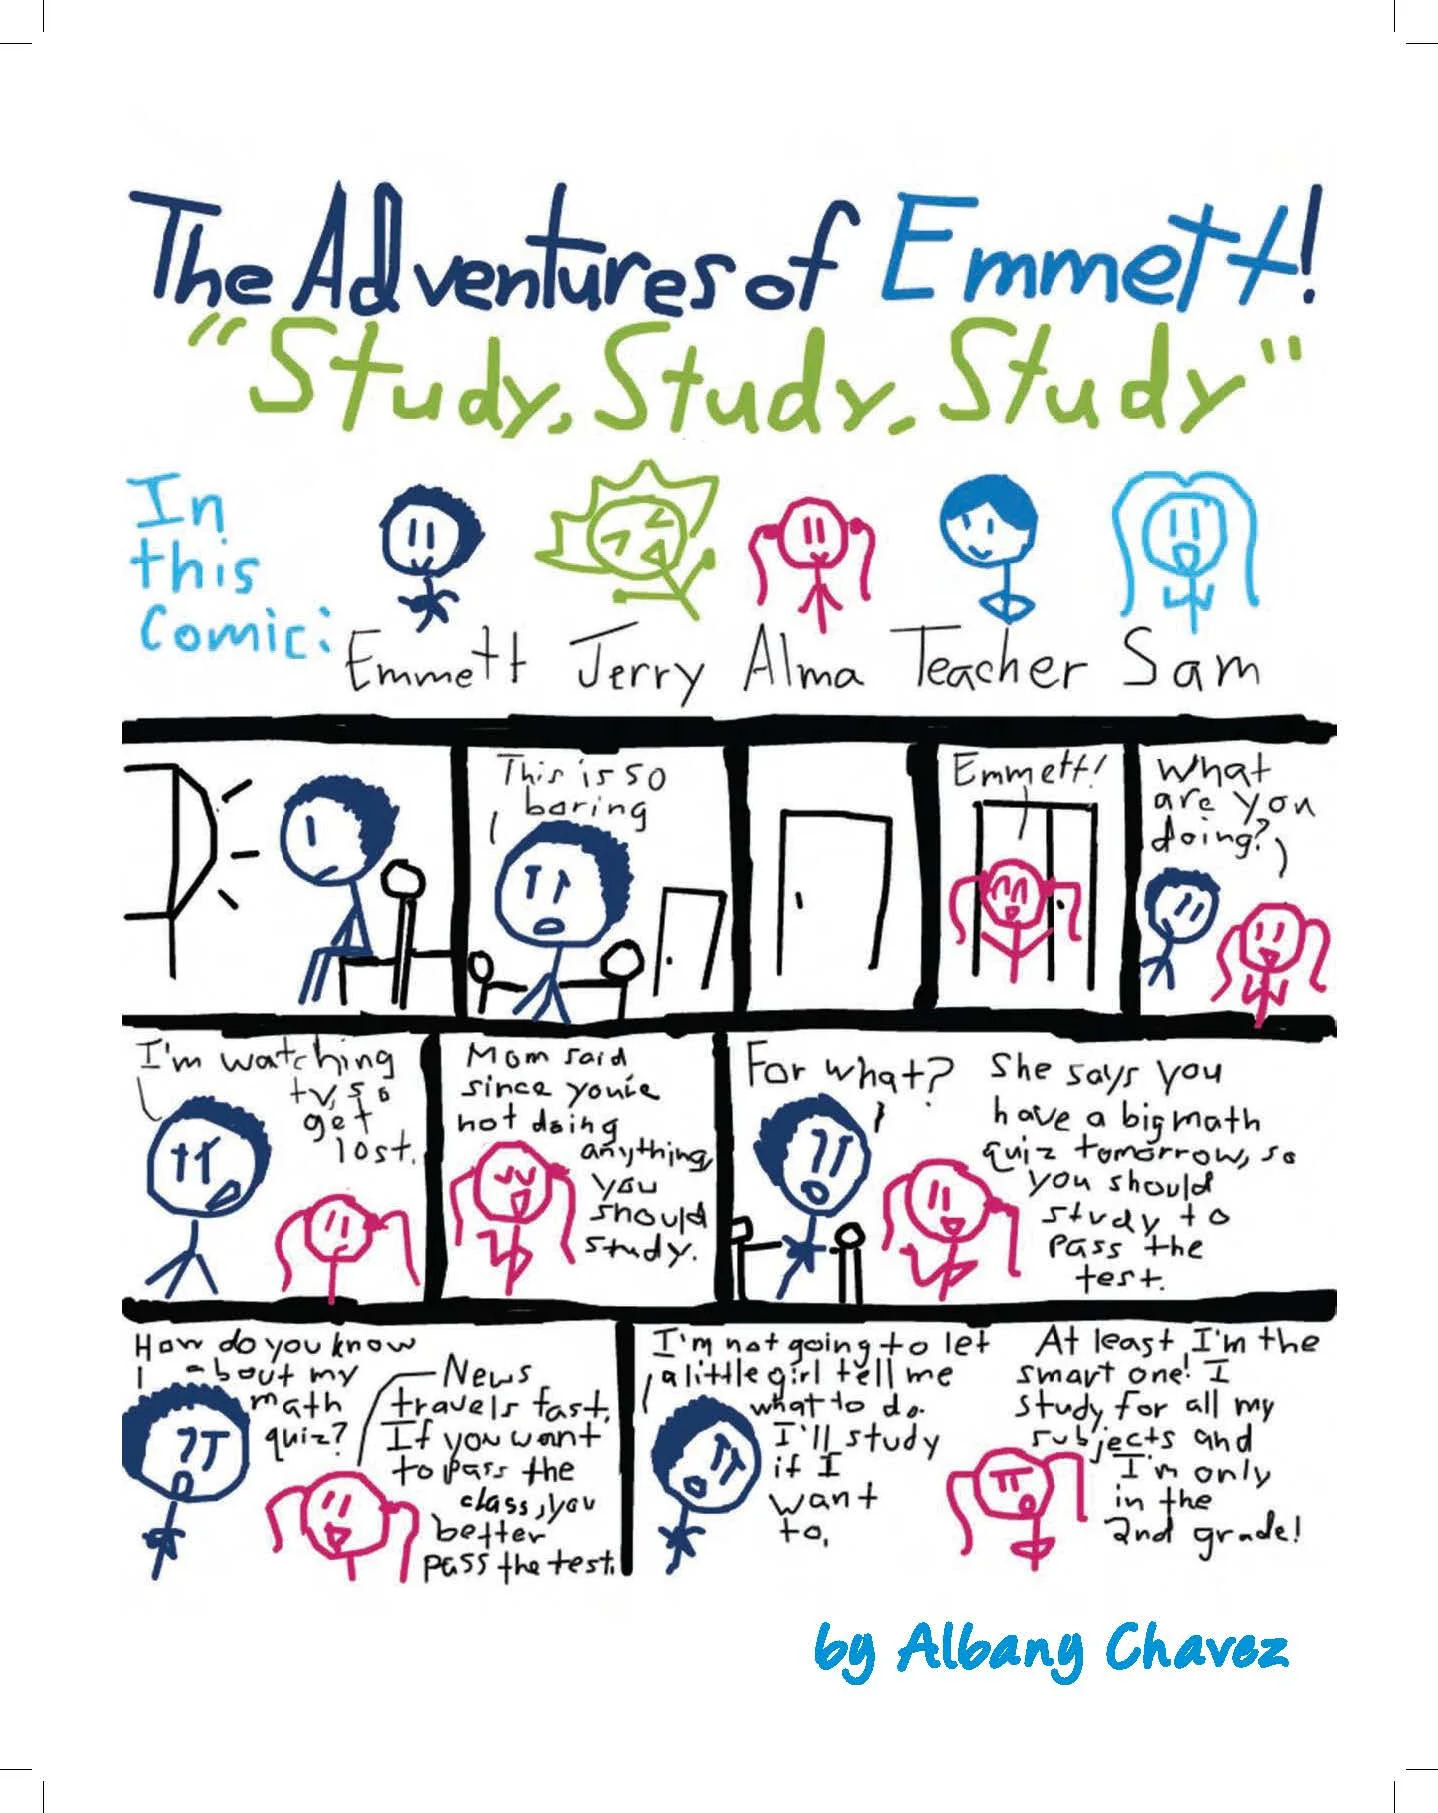 The Adventures of Emmett!
"Study, Study, Study"
In
this
Comic:
Emmett Jerry Alma Teacher Sam
This is so
boring
Emmett!
What
are you
doing?
I'm watching
tv, so
get
lost.
Mom said
since you're
not doing
anything,
you
should
study.
For what?
She says you
have a big math
quiz tomorrow, so
you should
study to
pass the
test.
How do you know
about my
math
quiz?
News
travels fast.
If you want
to pass the
class, you
better
pass the test.
I'm not going to let
a little girl tell me
what to do.
I'll study
if I
want
to.
At least I'm the
smart one! I
study for all my
subjects and
I'm only
in the
2nd grade!
by Albany Chavez